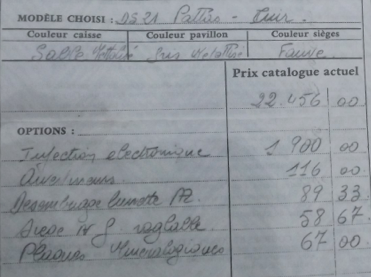 MODÈLE CHOISI : DS 21 Pallas - Cuir.
Couleur caisse Couleur pavillon Couleur sièges
Sable Métallisé Fauve
Prix catalogue actuel
22.456 00
OPTIONS :
Injection electronique 1 900 00
116 00
Desembuage lunette AR 89 33
AV reglable 58 67
Plaques Mineralogiques 67 00